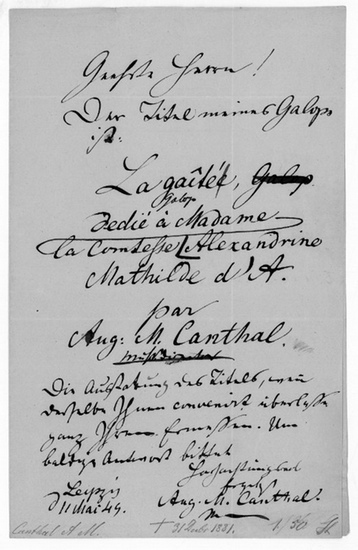 Geehrte Herrn!
Der Titel meines Galops
ist:
La gaîté, Galop
Galop
Dedié à Madame
la Comtesse Alexandrine
Mathilde d'A.
par
Aug: M. Canthal.
Musikdirector
Die Ausstatung des Titels, wenn
derselbe Ihnen convenirt überlasse
ganz Ihrem Ermessen. Um
baldige Antwort bittet
Hochachtungsvoll
Leipzig
d 11 Mai 49.
Aug. M. Canthal.
Canthal A M.